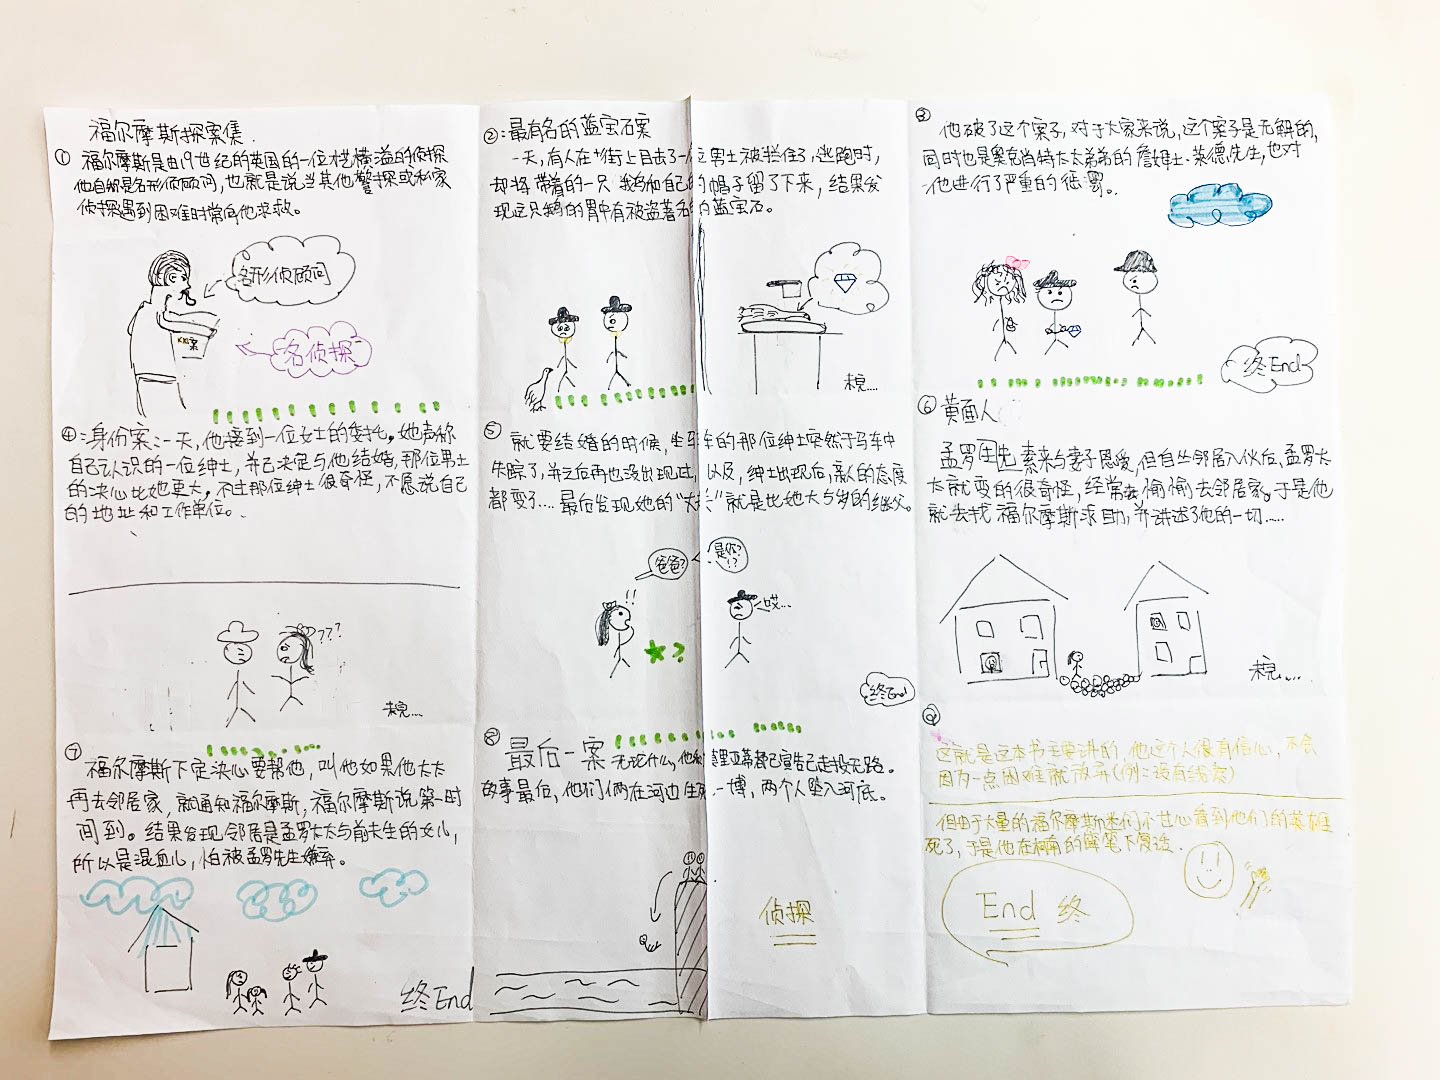 福尔摩斯探案集.
① 福尔摩斯是由19世纪的英国的一位才横溢的侦探
他自称是名形侦顾问,也就是说当其他警探或私家
侦探遇到困难时常向他求救。
名形侦顾问
名侦探
案
②:最有名的蓝宝石案
一天,有人在街上目击了一位男士被拦住了,逃跑时,
却将带着的一只鹅和自己的帽子留了下来,结果发
现这只鹅的胃中有被盗著名的蓝宝石。
未完....
③ 他破了这个案子,对于大家来说,这个案子是无解的,
同时也是奥克肖特太太弟弟的詹姆士·莱德先生,也对
他进行了严重的惩罚。
终End
④:身份案:一天,他接到一位女士的委托。她声称
自己认识的一位绅士,并已决定与他结婚,那位男士
的决心比她更大,不过那位绅士很奇怪,不愿说自己
的地址和工作单位。
???
未完...
⑤ 就要结婚的时候,坐马车的那位绅士突然于马车中
失踪了,并之后再也没出现过,以及,绅士出现后,亲人的态度
都变了....最后发现她的“丈夫”就是比她大5岁的继父。
爸爸?
是你?
!?
!!
哎...
?
终End
⑥ 黄面人
孟罗先生素来与妻子恩爱,但自从邻居入伙后,孟罗太
太就变的很奇怪,经常去偷偷去邻居家。于是他
就去找福尔摩斯求助,并讲述了他的一切......
未完....
⑦ 福尔摩斯下定决心要帮他,叫他如果他太太
再去邻居家,就通知福尔摩斯,福尔摩斯说第一时
间到。结果发现邻居是孟罗太太与前夫生的女儿,
所以是混血儿,怕被孟罗先生嫌弃。
终End
⑧ 最后一案 无论什么,他和莫里亚蒂都已宣告已走投无路。
故事最后,他们俩在河边生死一博,两个人坠入河底。
侦探
⑨
这就是这本书主要讲的,他这个人很有信心,不会
因为一点困难就放弃(例:没有线索)
但由于大量的福尔摩斯迷们不甘心看到他们的英雄
死了,于是他在柯南的笔下复活.
End 终